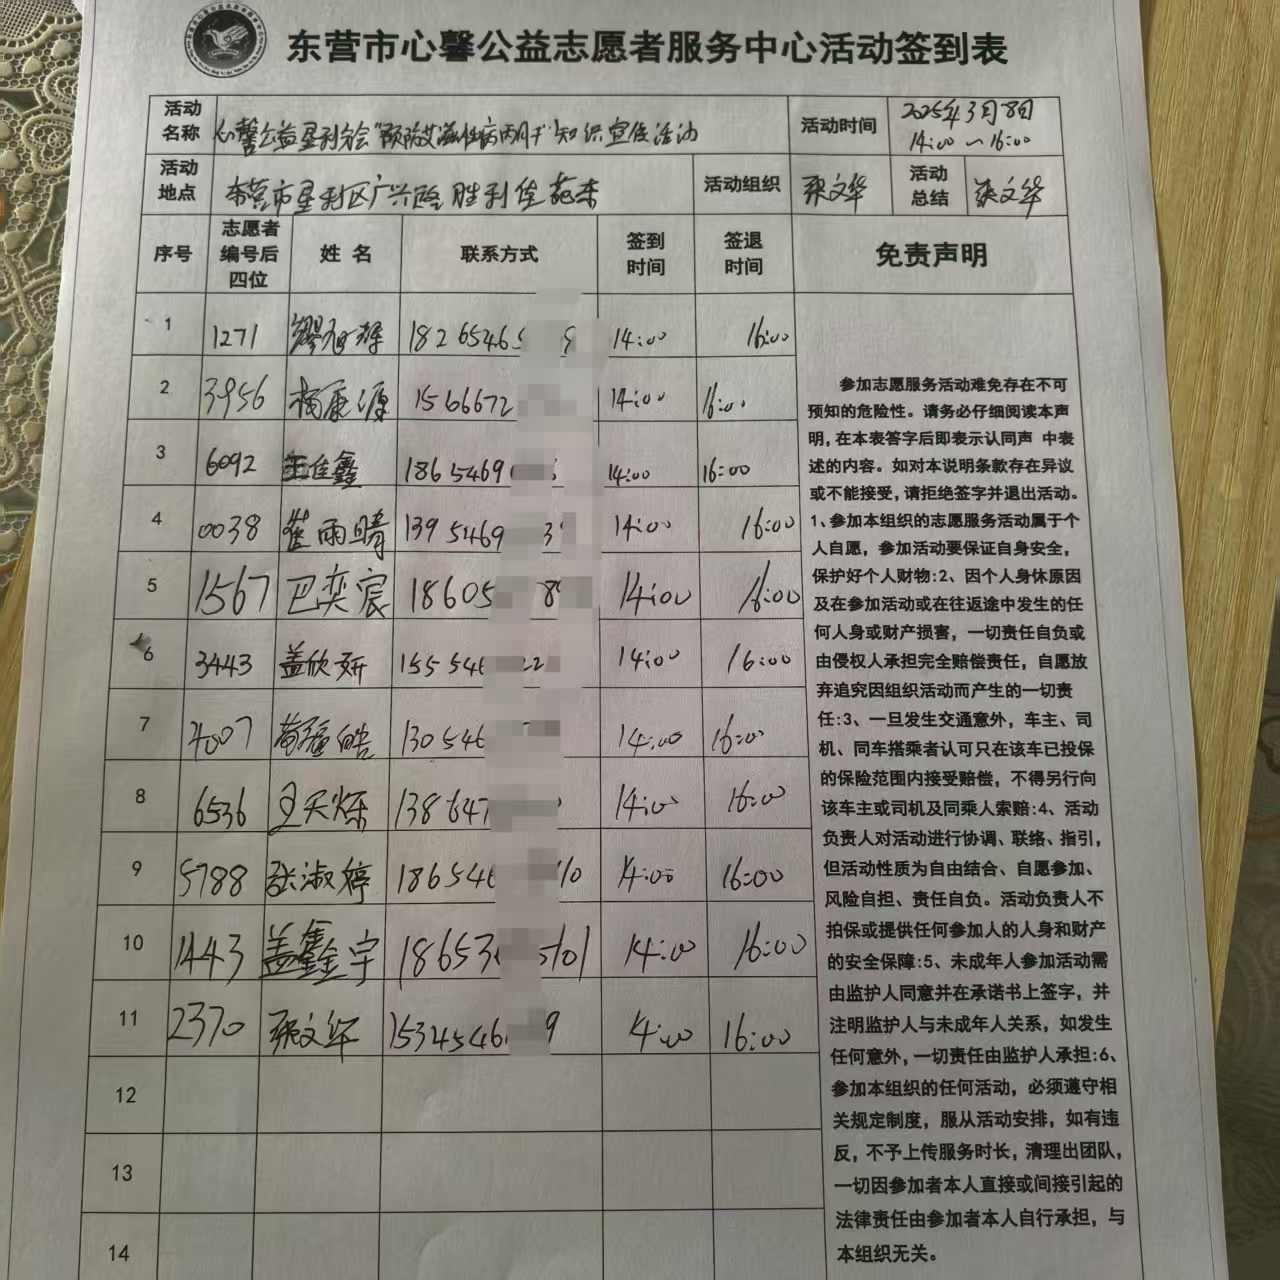 东营市心馨公益志愿者服务中心活动签到表
活动名称 心馨公益垦利分会"预防艾滋性病丙肝"知识宣传活动 活动时间 2025年3月8日 14:00~16:00
活动地点 东营市垦利区广兴路胜利佳苑东 活动组织 张文华 活动总结 张文华
序号 志愿者编号后四位 姓名 联系方式 签到时间 签退时间 免责声明
1 1271 1826546 14:00 16:00
2 3956 杨康源 1566672 14:00 16:00
3 6092 王佳鑫 1865469 14:00 16:00
4 0038 崔雨晴 1395469 3 14:00 16:00
5 1567 巴奕宸 18605 8 14:00 16:00
6 3443 盖欣妍 155546 22 14:00 16:00
7 4007 130546 14:00 16:00
8 6536 王天烁 138647 14:00 16:00
9 5788 张淑婷 186546 10 14:00 16:00
10 1443 盖鑫宇 18653 5101 14:00 16:00
11 2370 张文华 1534546 9 14:00 16:00
12
13
14
参加志愿服务活动难免存在不可
预知的危险性。请务必仔细阅读本声
明,在本表签字后即表示认同声 中表
述的内容。如对本说明条款存在异议
或不能接受,请拒绝签字并退出活动。
1、参加本组织的志愿服务活动属于个
人自愿,参加活动要保证自身安全,
保护好个人财物:2、因个人身休原因
及在参加活动或在往返途中发生的任
何人身或财产损害,一切责任自负或
由侵权人承担完全赔偿责任,自愿放
弃追究因组织活动而产生的一切责
任:3、一旦发生交通意外,车主、司
机、同车搭乘者认可只在该车已投保
的保险范围内接受赔偿,不得另行向
该车主或司机及同乘人索赔:4、活动
负责人对活动进行协调、联络、指引,
但活动性质为自由结合、自愿参加、
风险自担、责任自负。活动负责人不
拍保或提供任何参加人的人身和财产
的安全保障:5、未成年人参加活动需
由监护人同意并在承诺书上签字,并
注明监护人与未成年人关系,如发生
任何意外,一切责任由监护人承担:6、
参加本组织的任何活动,必须遵守相
关规定制度,服从活动安排,如有违
反,不予上传服务时长,清理出团队,
一切因参加者本人直接或间接引起的
法律责任由参加者本人自行承担,与
本组织无关。